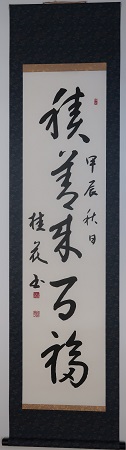 積善来百福
甲辰秋日
桂花书